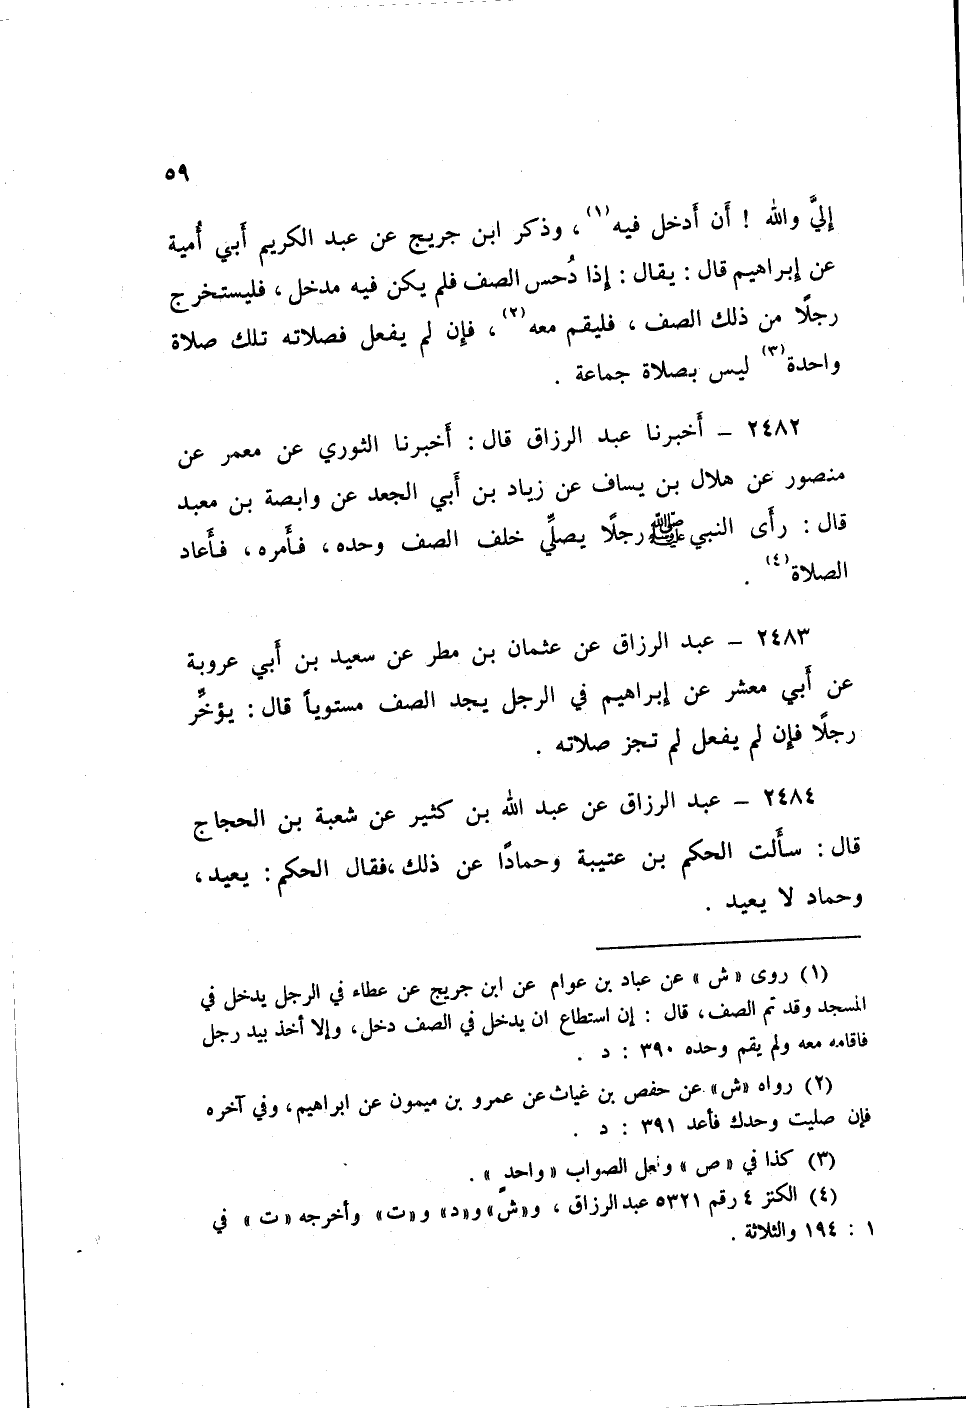 ٥٩
إليَّ والله ! أن أدخل فيه(١) ، وذكر ابن جريج عن عبد الكريم أبي أُمية
عن إبراهيم قال : يقال : إذا دُحس الصف فلم يكن فيه مدخل ، فليستخرج
رجلًا من ذلك الصف ، فليقم معه(٢) ، فإن لم يفعل فصلاته تلك صلاة
واحدة(٣) ليس بصلاة جماعة .
٢٤٨٢ – أخبرنا عبد الرزاق قال : أخبرنا الثوري عن معمر عن
منصور عن هلال بن يساف عن زياد بن أبي الجعد عن وابصة بن معبد
قال : رأى النبي ﷺ رجلًا يصلِّي خلف الصف وحده ، فأمره ، فأعاد
الصلاة(٤) .
٢٤٨٣ – عبد الرزاق عن عثمان بن مطر عن سعيد بن أبي عروبة
عن أبي معشر عن إبراهيم في الرجل يجد الصف مستوياً قال : يؤخِّر
رجلًا فإن لم يفعل لم تجز صلاته .
٢٤٨٤ – عبد الرزاق عن عبد الله بن كثير عن شعبة بن الحجاج
قال : سألت الحكم بن عتيبة وحمادًا عن ذلك ،فقال الحكم : يعيد ،
وحماد لا يعيد .
(١) روى «ش» عن عباد بن عوام عن ابن جريج عن عطاء في الرجل يدخل في
المسجد وقد تم الصف ، قال : إن استطاع ان يدخل في الصف دخل ، وإلا أخذ بيد رجل
فاقامه معه ولم يقم وحده ٣٩٠ : د .
(٢) رواه «ش» عن حفص بن غياث عن عمرو بن ميمون عن ابراهيم ، وفي آخره
فإن صليت وحدك فأعد ٣٩١ : د .
(٣) كذا في «ص» ولعل الصواب «واحدٍ» .
(٤) الكنز ٤ رقم ٥٣٢١ عبد الرزاق ، و«ش» و«د» و«ت» وأخرجه «ت» في
١ : ١٩٤ والثلاثة .